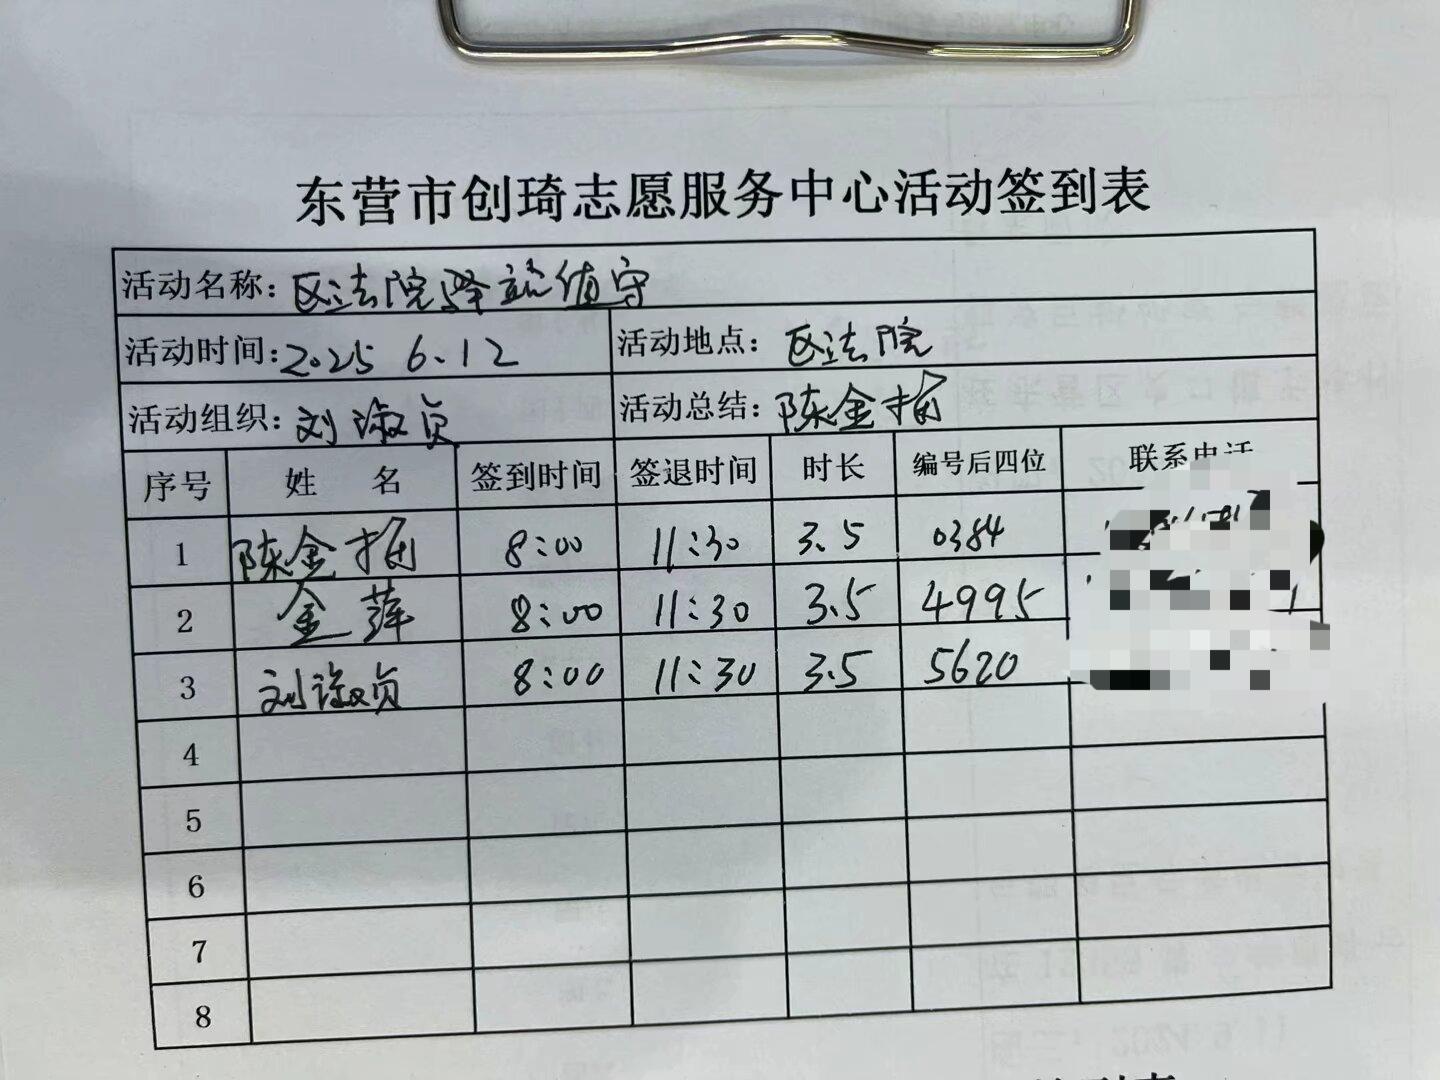 东营市创琦志愿服务中心活动签到表
活动名称: 区法院驿站值守
活动时间: 2025 6.12 活动地点: 区法院
活动组织: 刘淑贞 活动总结: 陈金
序号 姓 名 签到时间 签退时间 时长 编号后四位 联系电话
1 陈金 8:00 11:30 3.5 0384
2 金萍 8:00 11:30 3.5 4995
3 刘淑贞 8:00 11:30 3.5 5620
4
5
6
7
8